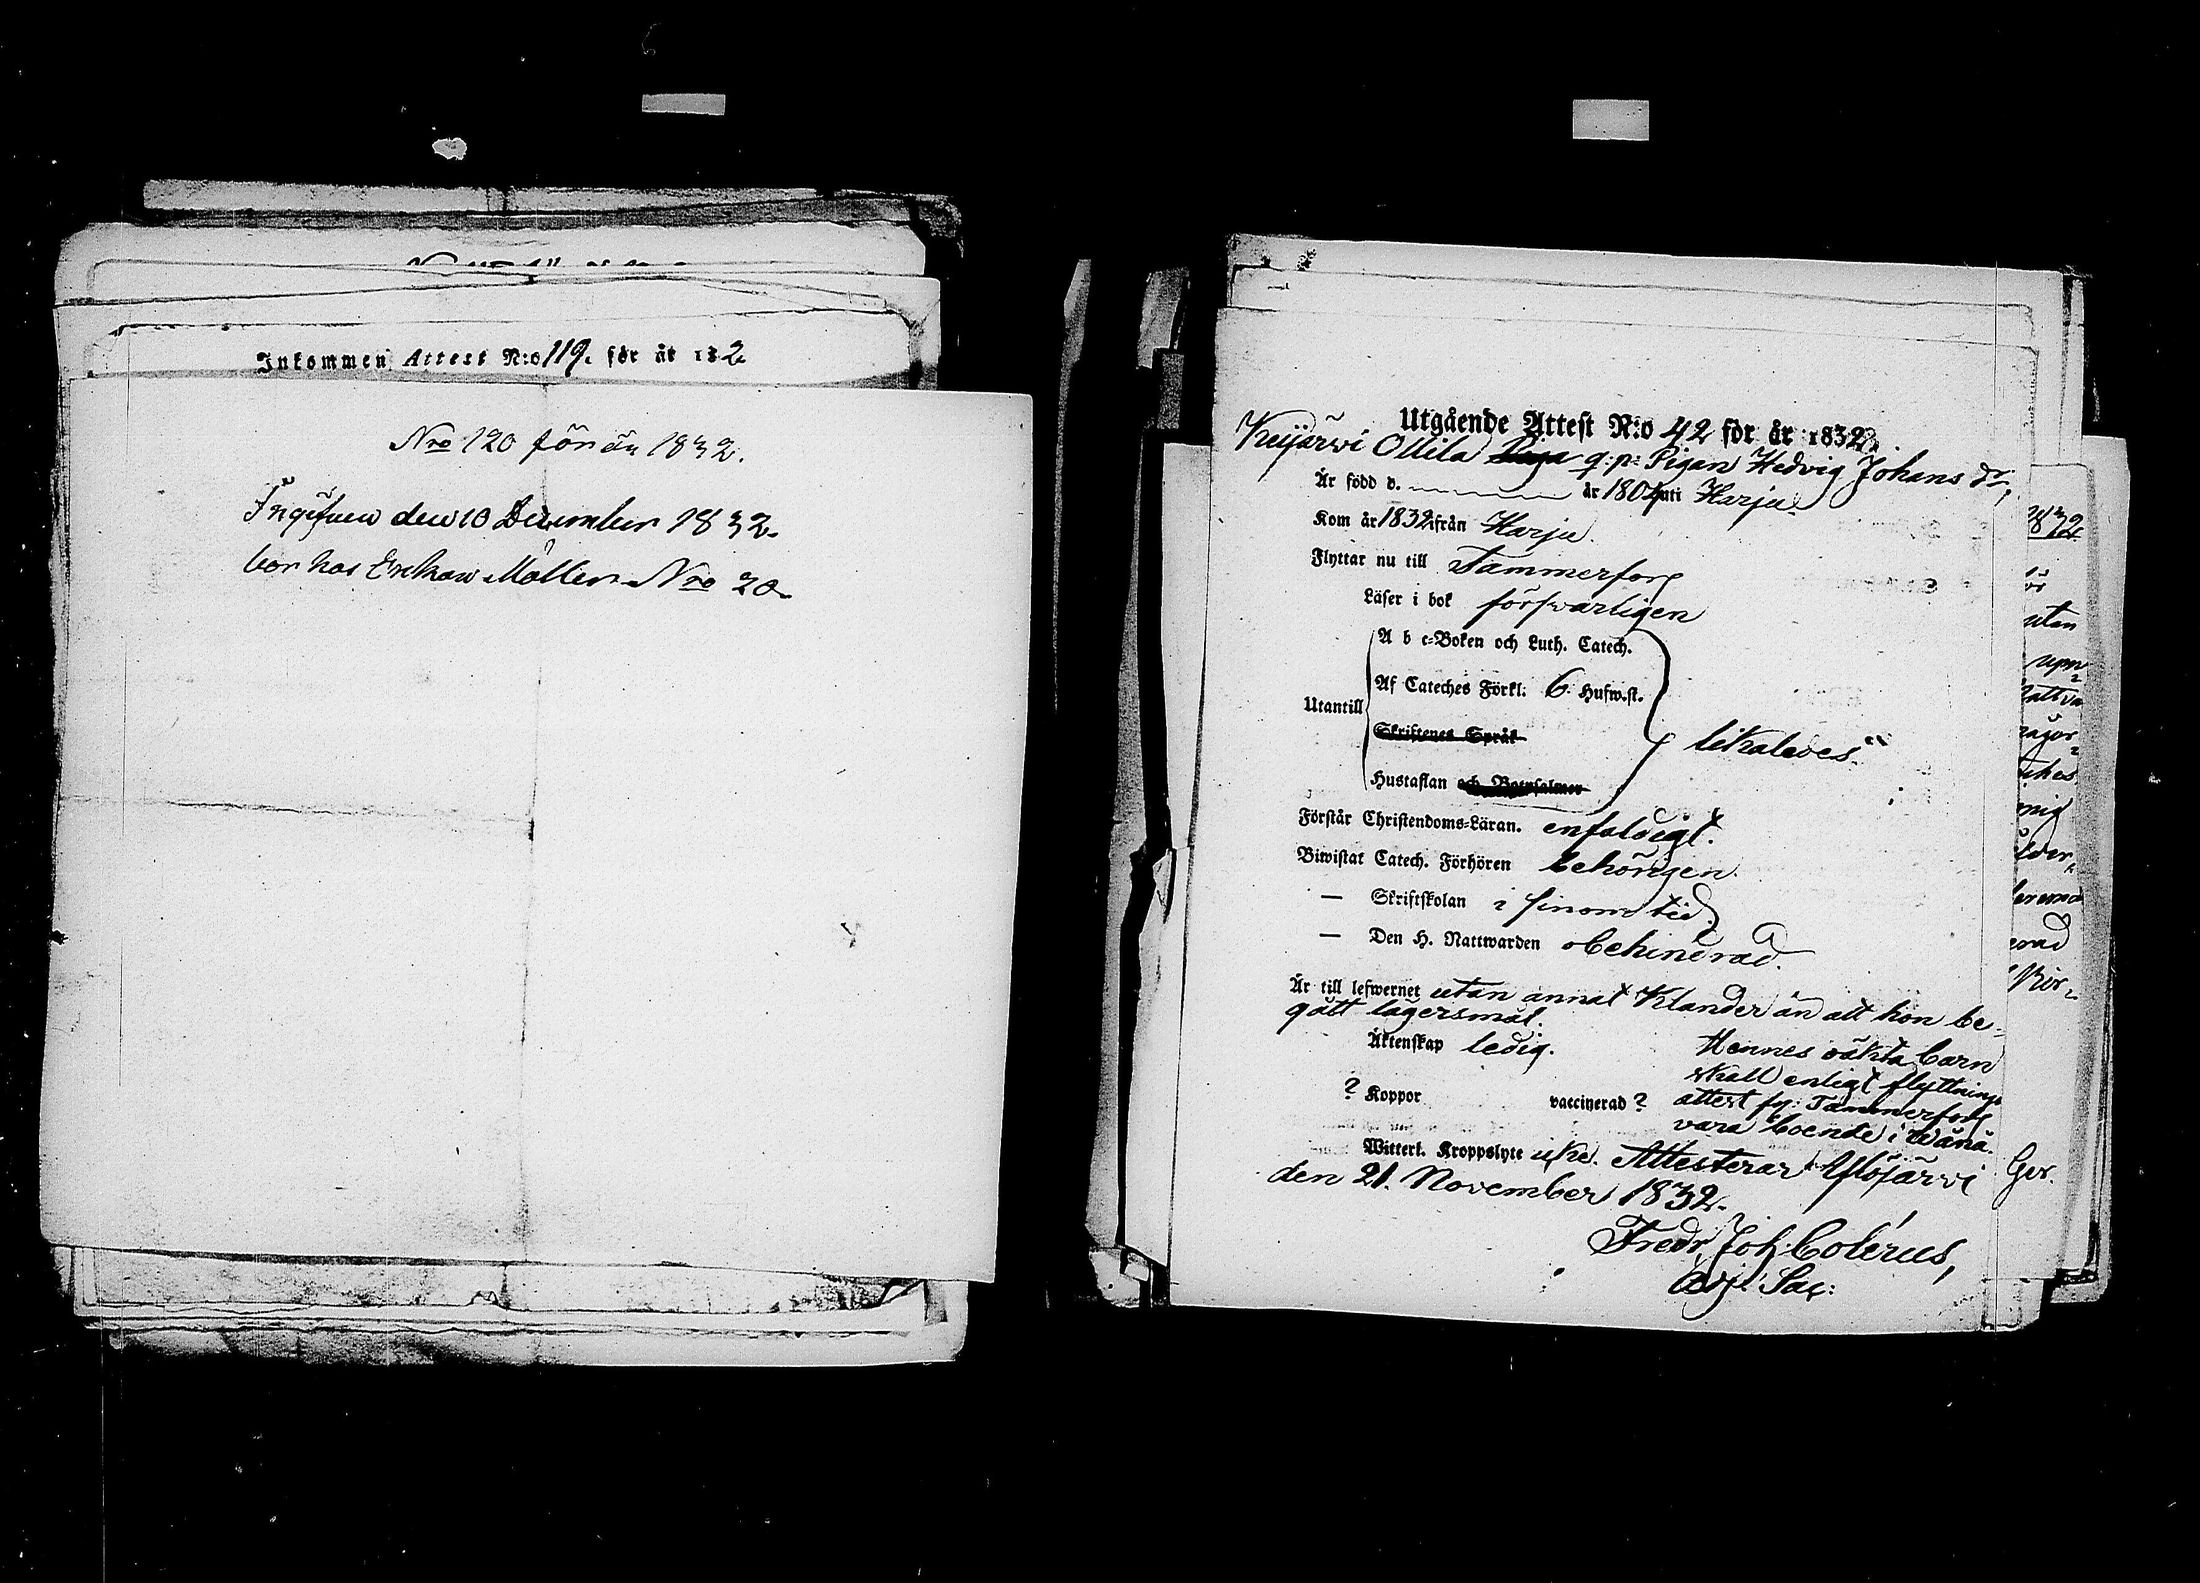 Inkommen Attest N:o 119. för år 1832
Nro 120 för år 1832.
Ingifven den 10 December 1832.
bor hos Enkan Möller Nro 20.
Utgående Attest N:o 42 för år 1832.
Keijärvi Ollila q:p: Pigan Hedvig Johans dr,
Är född d. år 1804 uti Harju.
Kom år 1832 ifrån Harju.
Flyttar nu till Tammerfors
Läser i bok försvarligen
A b c-Boken och Luth. Catech.
Af Cateches Förkl: 6 Hufw.st.
Utantill
Skriftenes Språk
likaledes.
Hustaflan och Botpsalmer
Förstår Christendoms-Läran. enfaldigt.
Biwistat Catech. Förhören behörigen.
— Skriftskolan i sinom tid.
— Den H. Nattwarden obehindrad.
Är till lefwernet utan annat Klander än att hon be-
gått lägersmål.
Äktenskap ledig.
Hennes oäkta barn
skall enligt flyttnings
attest fr: Tammerfors
vara boende i Wänä.
? Koppor vaccinerad ?
Witterl. Kroppslyte icke. Attesterar Ylöjärvi
den 21. November 1832.
Fredr. Joh: Colérus,
Adj: Sac:
1832
utan
erad
Ger.